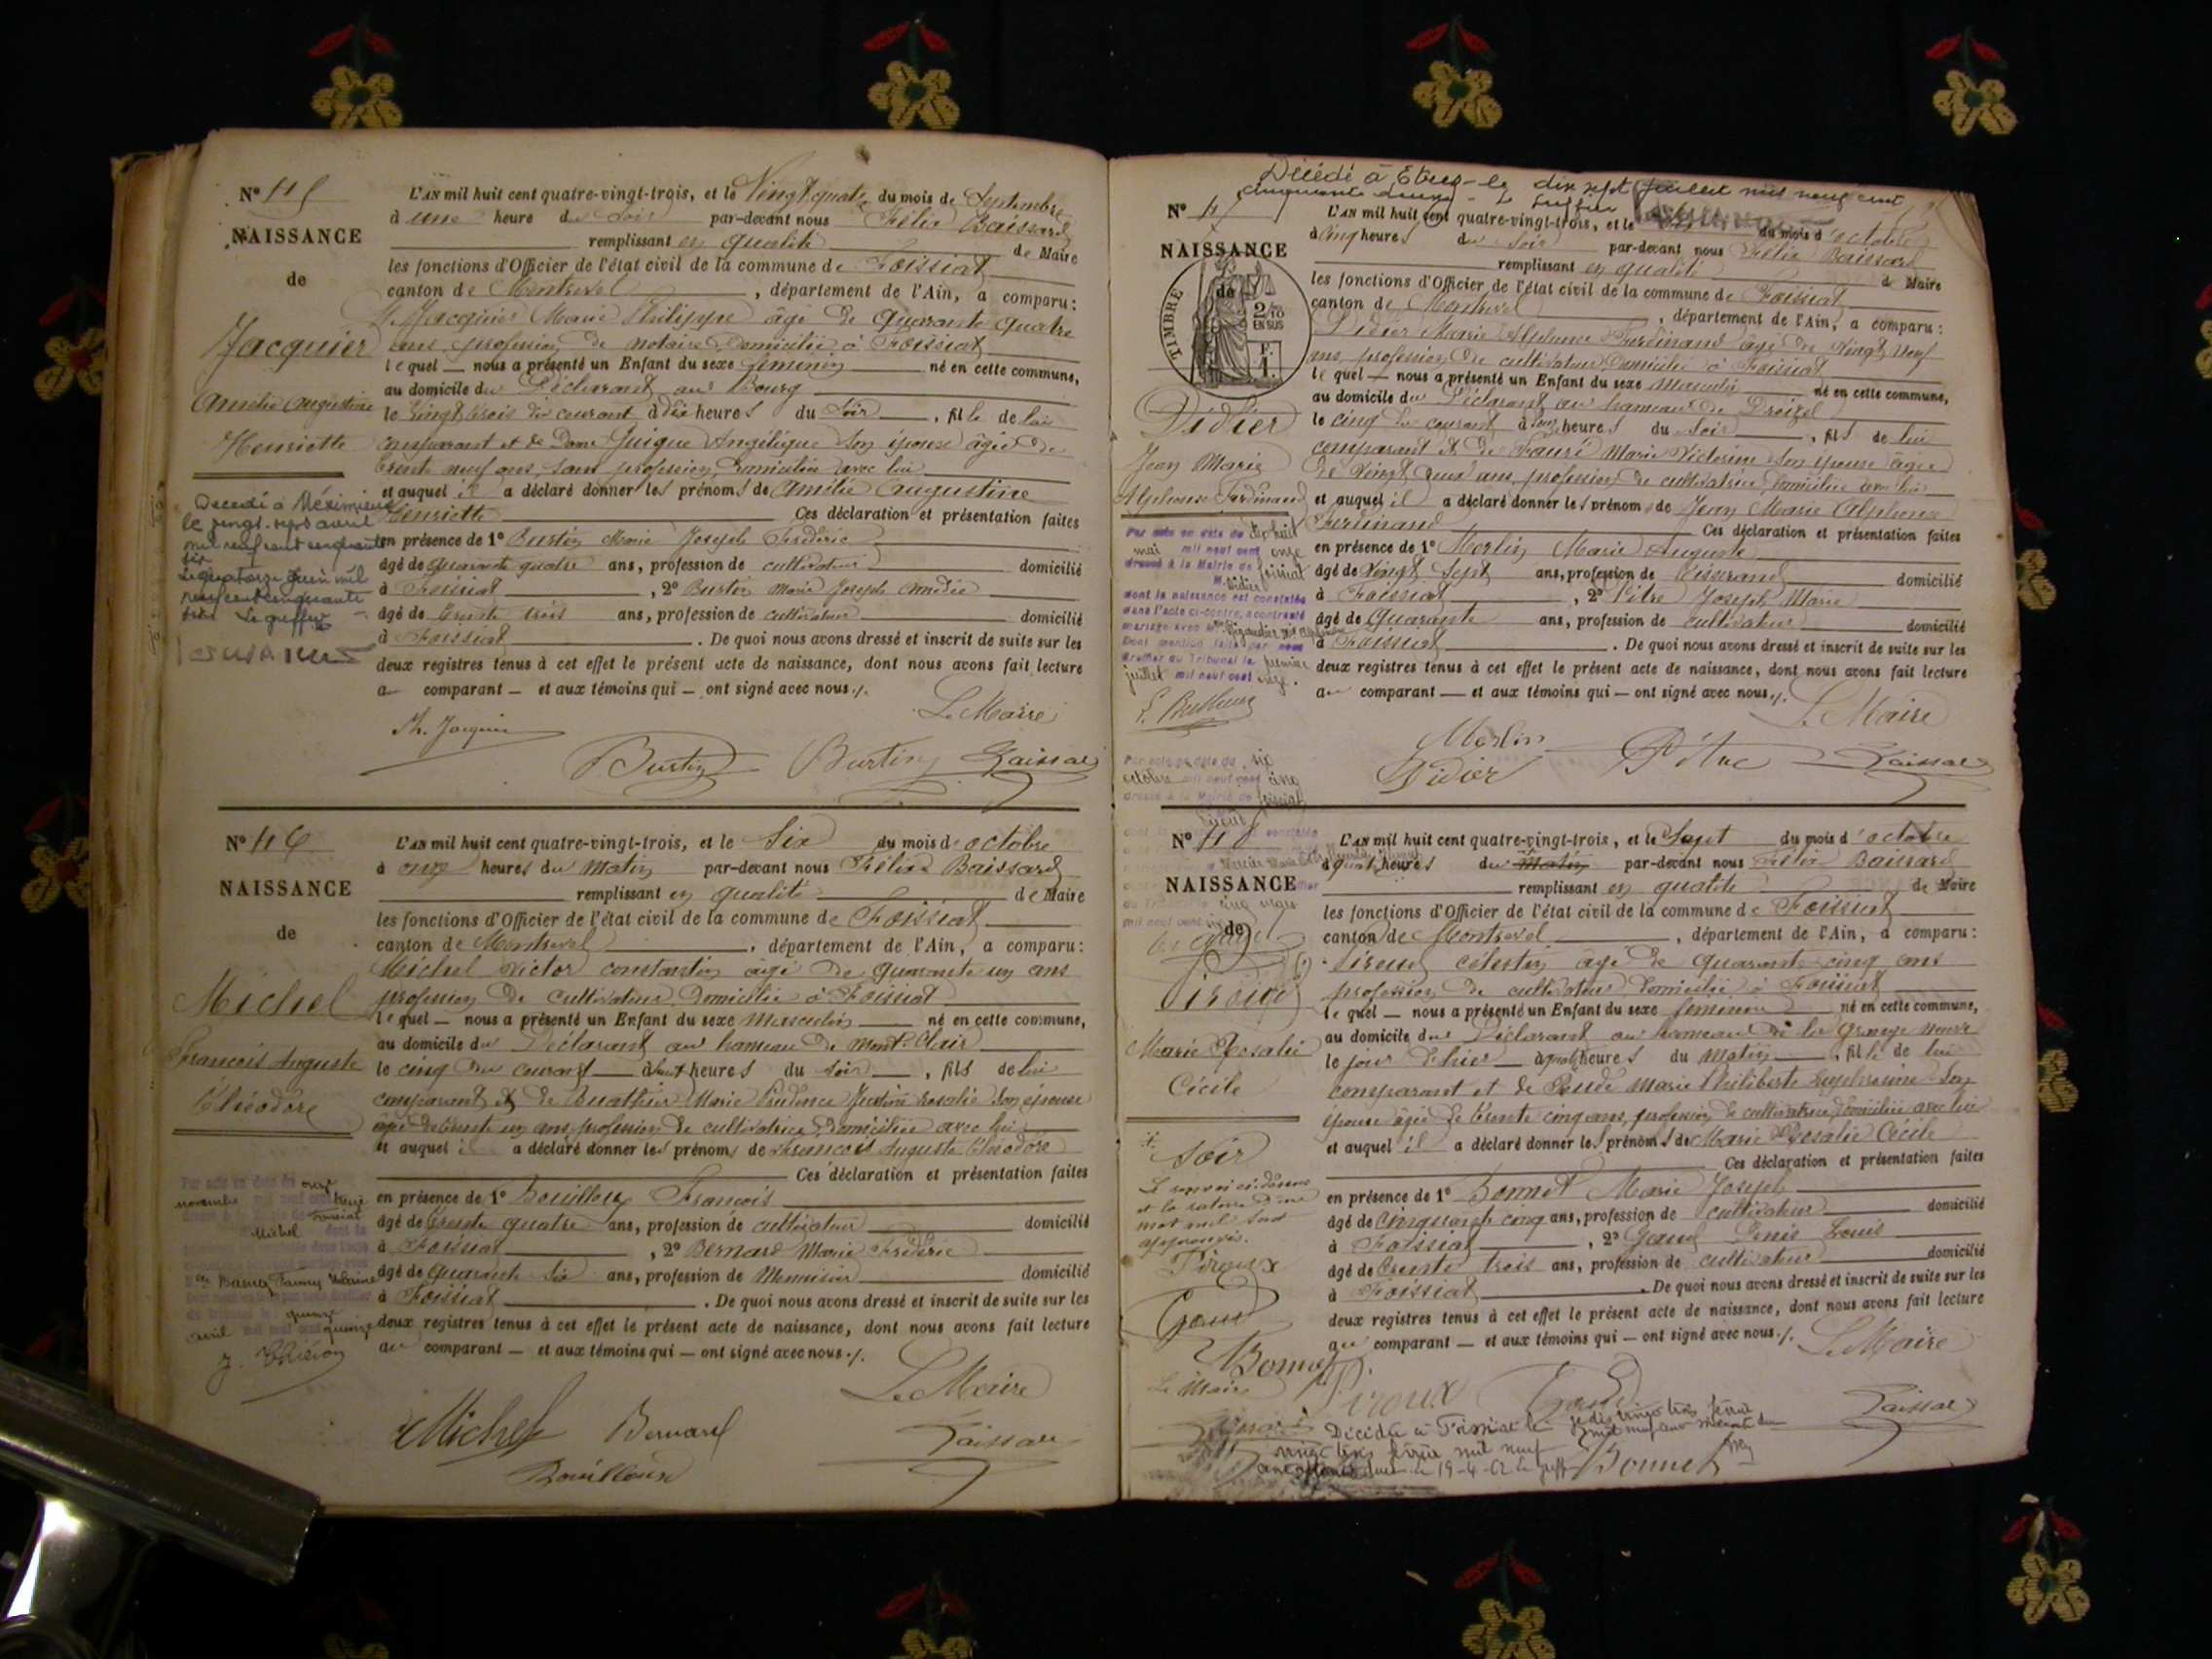 N° 45
NAISSANCE
de
Jacquier
Amélie Augustine
Henriette
Décédé à Méximieux
le vingt-sept avril
mil neuf cent cinquante
six
Le quatorze juin mil
neuf cent cinquante
six Le greffier
L'AN mil huit cent quatre-vingt-trois, et le Vingt quatre du mois de Septembre
à une heure du Soir par-devant nous Félix Baissard
remplissant en qualité de Maire
les fonctions d'Officier de l'état civil de la commune de Foissiat
canton de Montrevel, département de l'Ain, a comparu:
M. Jacquier Marie Philippe âgé de Quarante quatre
ans, profession de notaire, Domicilié à Foissiat
lequel — nous a présenté un Enfant du sexe féminin né en cette commune,
au domicile du Déclarant au Bourg
le Vingt trois du courant à dix heures du Soir, fille de lui
comparant et de Dame Guigue Angélique son épouse âgée de
trente neuf ans, sans profession, domiciliée avec lui
et auquel il a déclaré donner les prénoms de Amélie Augustine
Henriette Ces déclaration et présentation faites
en présence de 1° Burtin Marie Joseph Frédéric
âgé de quarante quatre ans, profession de cultivateur domicilié
à Foissiat, 2° Burtin Marie Joseph Amédée
âgé de trente trois ans, profession de cultivateur domicilié
à Foissiat. De quoi nous avons dressé et inscrit de suite sur les
deux registres tenus à cet effet le présent acte de naissance, dont nous avons fait lecture
au comparant — et aux témoins qui — ont signé avec nous ./.
Le Maire
Ph. Jacquier
Burtin Burtin Baissard
N° 46
NAISSANCE
de
Michel
François Auguste
Théodore
Par acte en date du onze
novembre mil neuf cent treize
Foissiat
Michel
Fanny
quinze
avril mil neuf cent quinze
L'AN mil huit cent quatre-vingt-trois, et le Six du mois d'octobre
à onze heures du Matin par-devant nous Félix Baissard
remplissant en qualité de Maire
les fonctions d'Officier de l'état civil de la commune de Foissiat
canton de Montrevel, département de l'Ain, a comparu:
Michel Victor constantin âgé de quarante un ans
profession de cultivateur, Domicilié à Foissiat
lequel — nous a présenté un Enfant du sexe Masculin né en cette commune,
au domicile du Déclarant au hameau de Mont-Clair
le cinq du courant à sept heures du soir, fils de lui
comparant et de Buathier Marie Prudence Justine Rosalie son épouse
âgée de trente un ans, profession de cultivatrice, domiciliée avec lui
et auquel il a déclaré donner les prénoms de François Auguste Théodore
Ces déclaration et présentation faites
en présence de 1° Bouilloux François
âgé de trente quatre ans, profession de cultivateur domicilié
à Foissiat, 2° Bernard Marie Frédéric
âgé de quarante six ans, profession de Menuisier domicilié
à Foissiat. De quoi nous avons dressé et inscrit de suite sur les
deux registres tenus à cet effet le présent acte de naissance, dont nous avons fait lecture
au comparant — et aux témoins qui — ont signé avec nous ./.
Le Maire
Michel Bernard Baissard
Bouilloux
Décédé à le dix sept juillet mil neuf cent
cinquante
N° 47
NAISSANCE
de
TIMBRE
2/10
EN SUS
F.
1.
Didier
Jean Marie
Alphonse Ferdinand
Par acte en date du dix huit
mai mil neuf cent onze
dressé à la Mairie de Foissiat
M. Didier
dont la naissance est constatée
dans l'acte ci-contre, a contracté
mariage avec
Dont mention faite par nous
Greffier au Tribunal le premier
juillet mil neuf cent onze.
L'AN mil huit cent quatre-vingt-trois, et le du mois d'octobre
à cinq heures du soir par-devant nous Félix Baissard
remplissant en qualité de Maire
les fonctions d'Officier de l'état civil de la commune de Foissiat
canton de Montrevel, département de l'Ain, a comparu:
Didier Marie Alphonse Ferdinand âgé de Vingt neuf
ans, profession de cultivateur, Domicilié à Foissiat
lequel — nous a présenté un Enfant du sexe Masculin né en cette commune,
au domicile du Déclarant au hameau de
le cinq du courant à heures du soir, fils de lui
comparant et de Fauré Marie Victorine son épouse âgée
de Vingt deux ans, profession de cultivatrice, domiciliée avec lui
et auquel il a déclaré donner les prénoms de Jean Marie Alphonse
Ferdinand Ces déclaration et présentation faites
en présence de 1° Merlin Marie Auguste
âgé de Vingt Sept ans, profession de Tisserand domicilié
à Foissiat, 2° Pitre Joseph Marie
âgé de Quarante ans, profession de cultivateur domicilié
à Foissiat. De quoi nous avons dressé et inscrit de suite sur les
deux registres tenus à cet effet le présent acte de naissance, dont nous avons fait lecture
au comparant — et aux témoins qui — ont signé avec nous ./.
Le Maire
Merlin
Didier Baissard
Par acte en date du six
octobre mil neuf cent cinq
dressé à la Mairie de Foissiat
N° 48
NAISSANCE
de
Piroux
Marie Rosalie
Cécile
Soir
Le renvoi ci-dessus
et la rature d'un
mot nul sont
approuvés.
Piroux
Gaud
Bonnet
Le Maire
L'AN mil huit cent quatre-vingt-trois, et le Sept du mois d'octobre
à quatre heures du Matin par-devant nous Félix Baissard
remplissant en qualité de Maire
les fonctions d'Officier de l'état civil de la commune de Foissiat
canton de Montrevel, département de l'Ain, a comparu:
Piroux célestin âgé de quarante cinq ans
profession de cultivateur, domicilié à Foissiat
lequel — nous a présenté un Enfant du sexe féminin né en cette commune,
au domicile du Déclarant au hameau de la Grange neuve
le jour d'hier à quatre heures du Matin, fille de lui
comparant et de Marie Philiberte Euphrosine Son
épouse âgée de trente cinq ans, profession de cultivatrice, domiciliée avec lui
et auquel il a déclaré donner les prénoms de Marie Rosalie Cécile
Ces déclaration et présentation faites
en présence de 1° Bonnet Marie Joseph
âgé de cinquante cinq ans, profession de cultivateur domicilié
à Foissiat, 2° Gaud Denis Louis
âgé de trente trois ans, profession de cultivateur domicilié
à Foissiat. De quoi nous avons dressé et inscrit de suite sur les
deux registres tenus à cet effet le présent acte de naissance, dont nous avons fait lecture
au comparant — et aux témoins qui — ont signé avec nous ./.
Le Maire
Piroux Gaud Baissard
Décédée à Foissiat le vingt trois février
mil neuf cent soixante deux
le 19-4-62 Bonnet